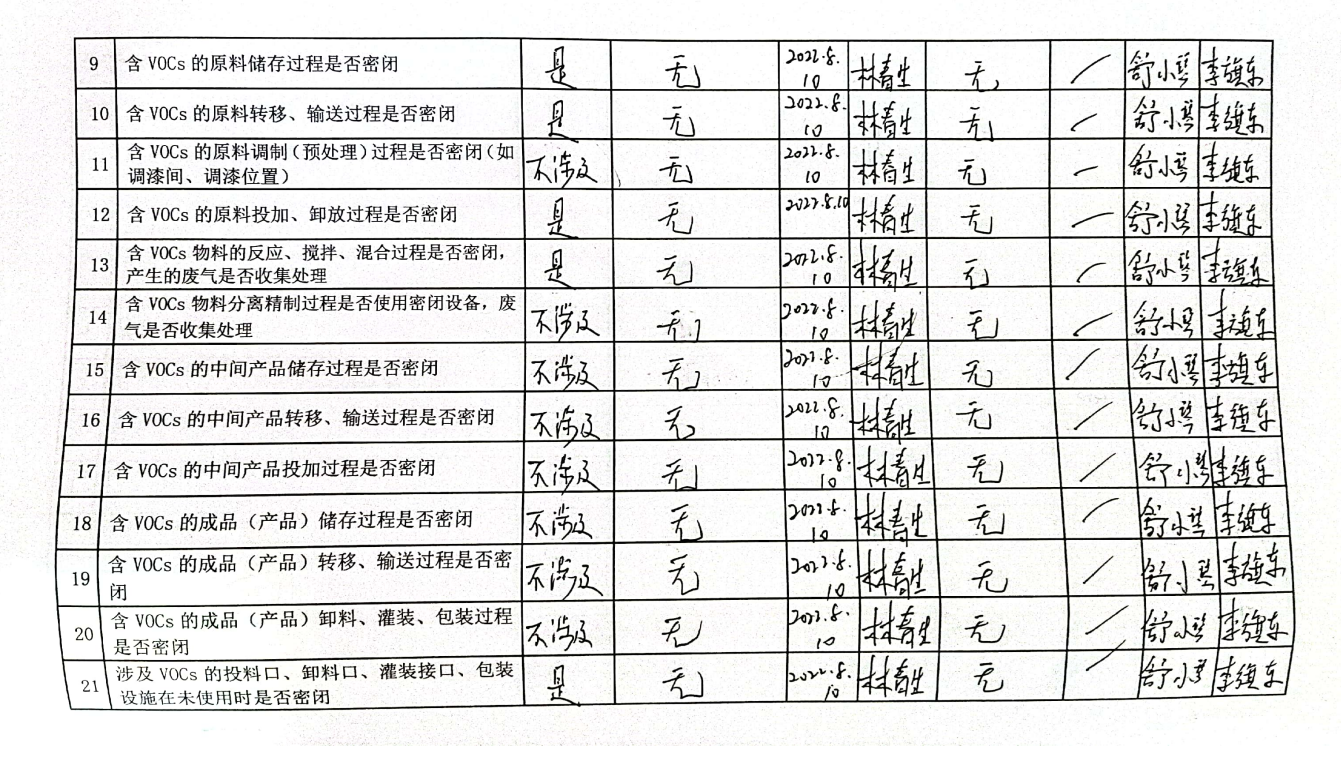 9 含 VOCs 的原料储存过程是否密闭 是 无 2022.8.10 林春生 无 / 舒小琴 李雄东
10 含 VOCs 的原料转移、输送过程是否密闭 是 无 2022.8.10 林春生 无 / 舒小琴 李雄东
11 含 VOCs 的原料调制(预处理)过程是否密闭(如 不涉及 无 2022.8.10 林春生 无 / 舒小琴 李雄东
调漆间、调漆位置)
12 含 VOCs 的原料投加、卸放过程是否密闭 是 无 2022.8.10 林春生 无 / 舒小琴 李雄东
13 含 VOCs 物料的反应、搅拌、混合过程是否密闭, 是 无 2022.8.10 林春生 无 / 舒小琴 李雄东
产生的废气是否收集处理
14 含 VOCs 物料分离精制过程是否使用密闭设备,废 不涉及 无 2022.8.10 林春生 无 / 舒小琴 李雄东
气是否收集处理
15 含 VOCs 的中间产品储存过程是否密闭 不涉及 无 2022.8.10 林春生 无 / 舒小琴 李雄东
16 含 VOCs 的中间产品转移、输送过程是否密闭 不涉及 无 2022.8.10 林春生 无 / 舒小琴 李雄东
17 含 VOCs 的中间产品投加过程是否密闭 不涉及 无 2022.8.10 林春生 无 / 舒小琴 李雄东
18 含 VOCs 的成品(产品)储存过程是否密闭 不涉及 无 2022.8.10 林春生 无 / 舒小琴 李雄东
19 含 VOCs 的成品(产品)转移、输送过程是否密 不涉及 无 2022.8.10 林春生 无 / 舒小琴 李雄东
闭
20 含 VOCs 的成品(产品)卸料、灌装、包装过程 不涉及 无 2022.8.10 林春生 无 / 舒小琴 李雄东
是否密闭
21 涉及 VOCs 的投料口、卸料口、灌装接口、包装 是 无 2022.8.10 林春生 无 / 舒小琴 李雄东
设施在未使用时是否密闭